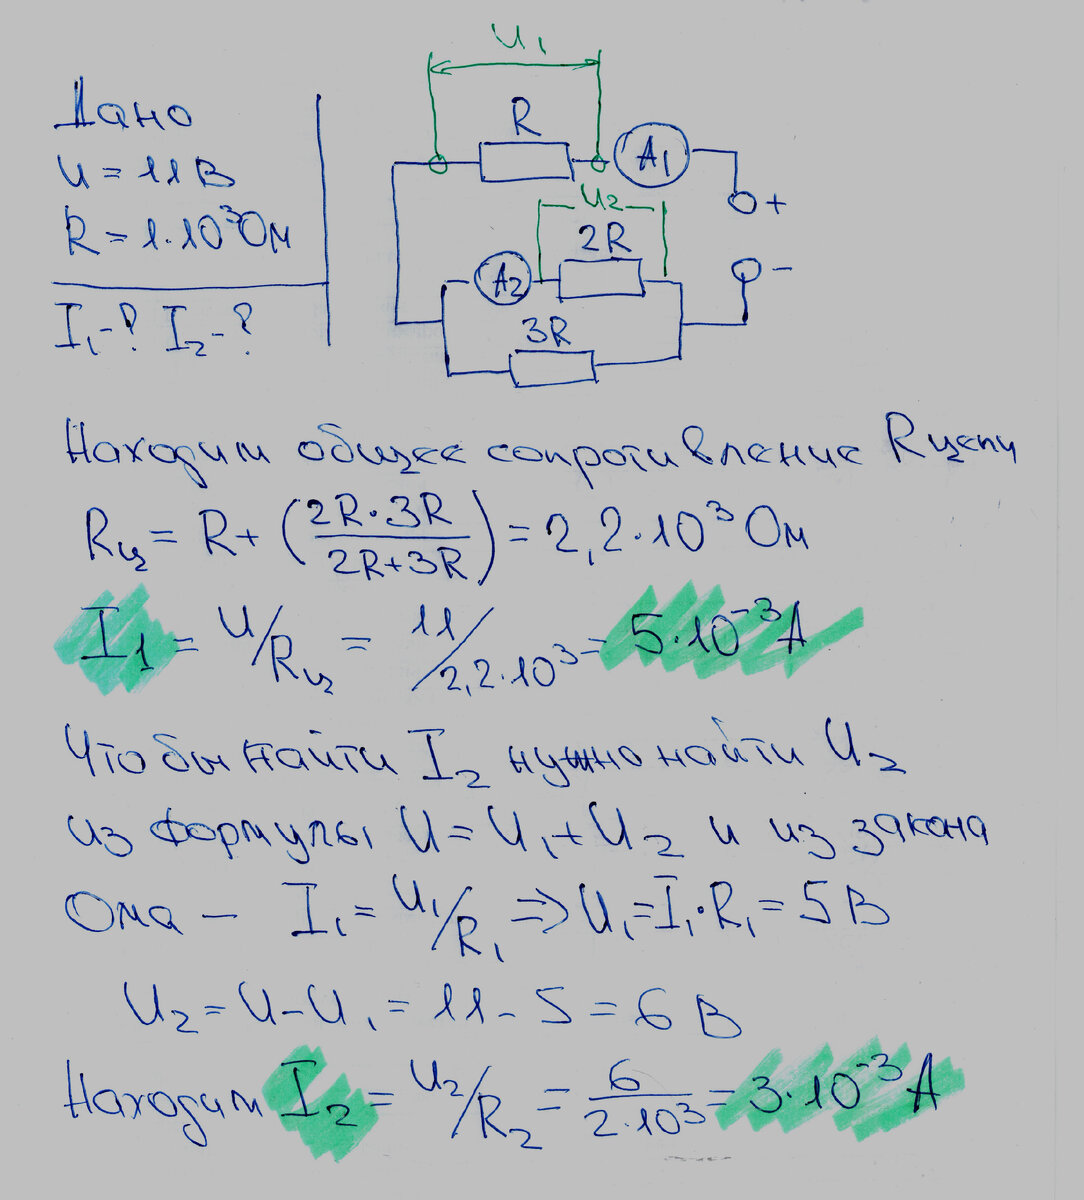 Дано
U = 11 В
R = 1·10³Ом
I₁-? I₂-?
U₁
R
A₁
+
U₂
2R
A₂
-
3R
Находим общее сопротивление Rцепи
Rц = R + (2R·3R / 2R+3R) = 2,2·10³ Ом
I₁ = U/Rц = 11/2,2·10³ = 5·10⁻³ А
Чтобы найти I₂ нужно найти U₂
из формулы U = U₁ + U₂ и из закона
Ома – I₁ = U₁/R₁ => U₁ = I₁·R₁ = 5 В
U₂ = U – U₁ = 11 – 5 = 6 В
Находим I₂ = U₂/R₂ = 6/2·10³ = 3·10⁻³ А